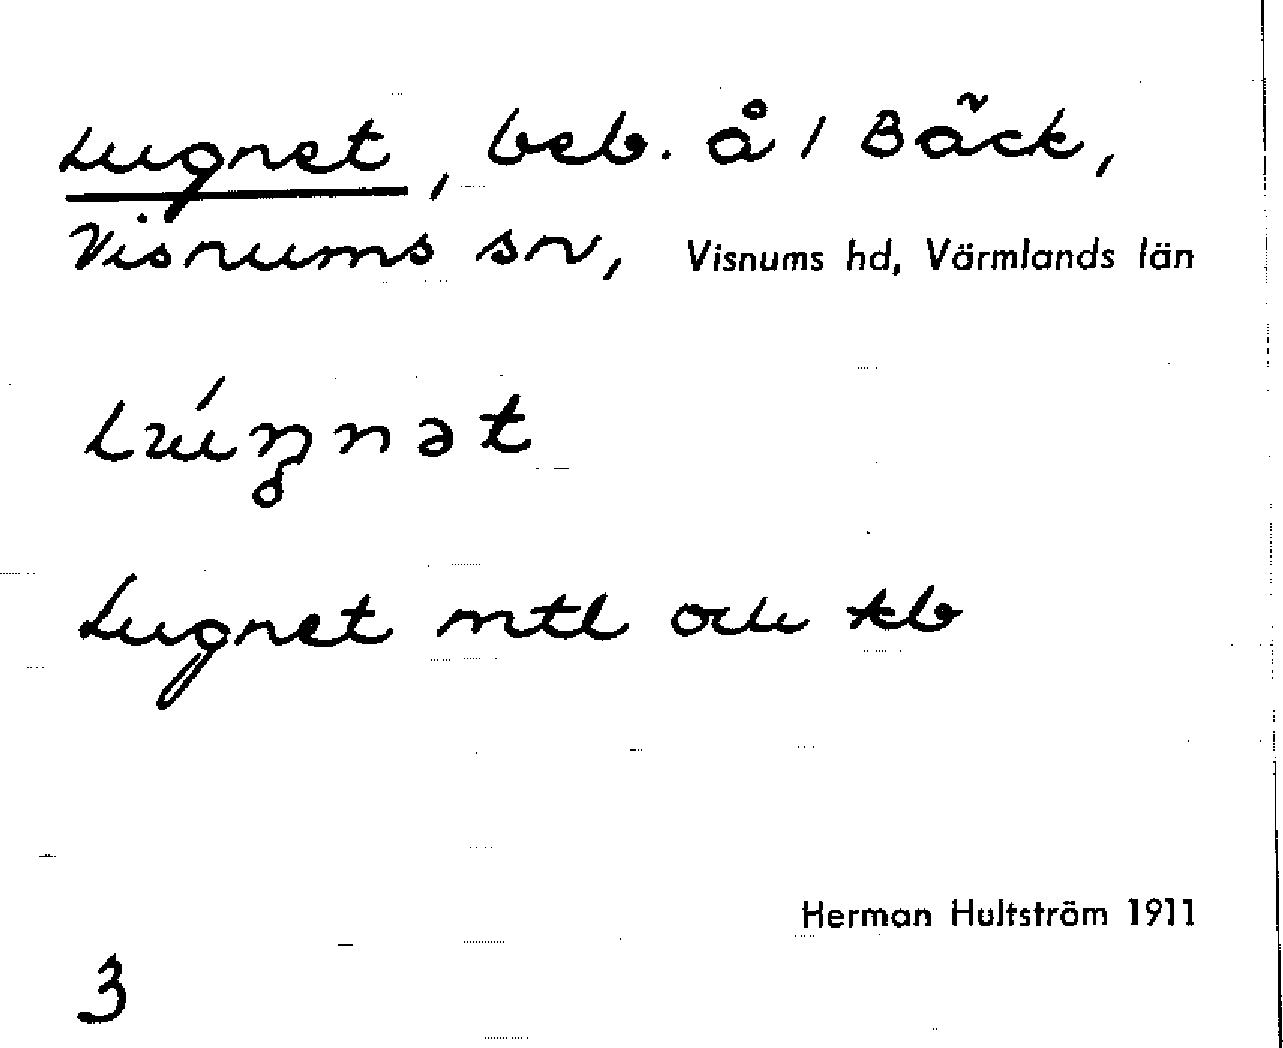 Lugnet, beb. å 1 Bäck,
Visnums sn, Visnums hd, Värmlands län
Lugnet mtl och kb
Herman Hultström 1911
3